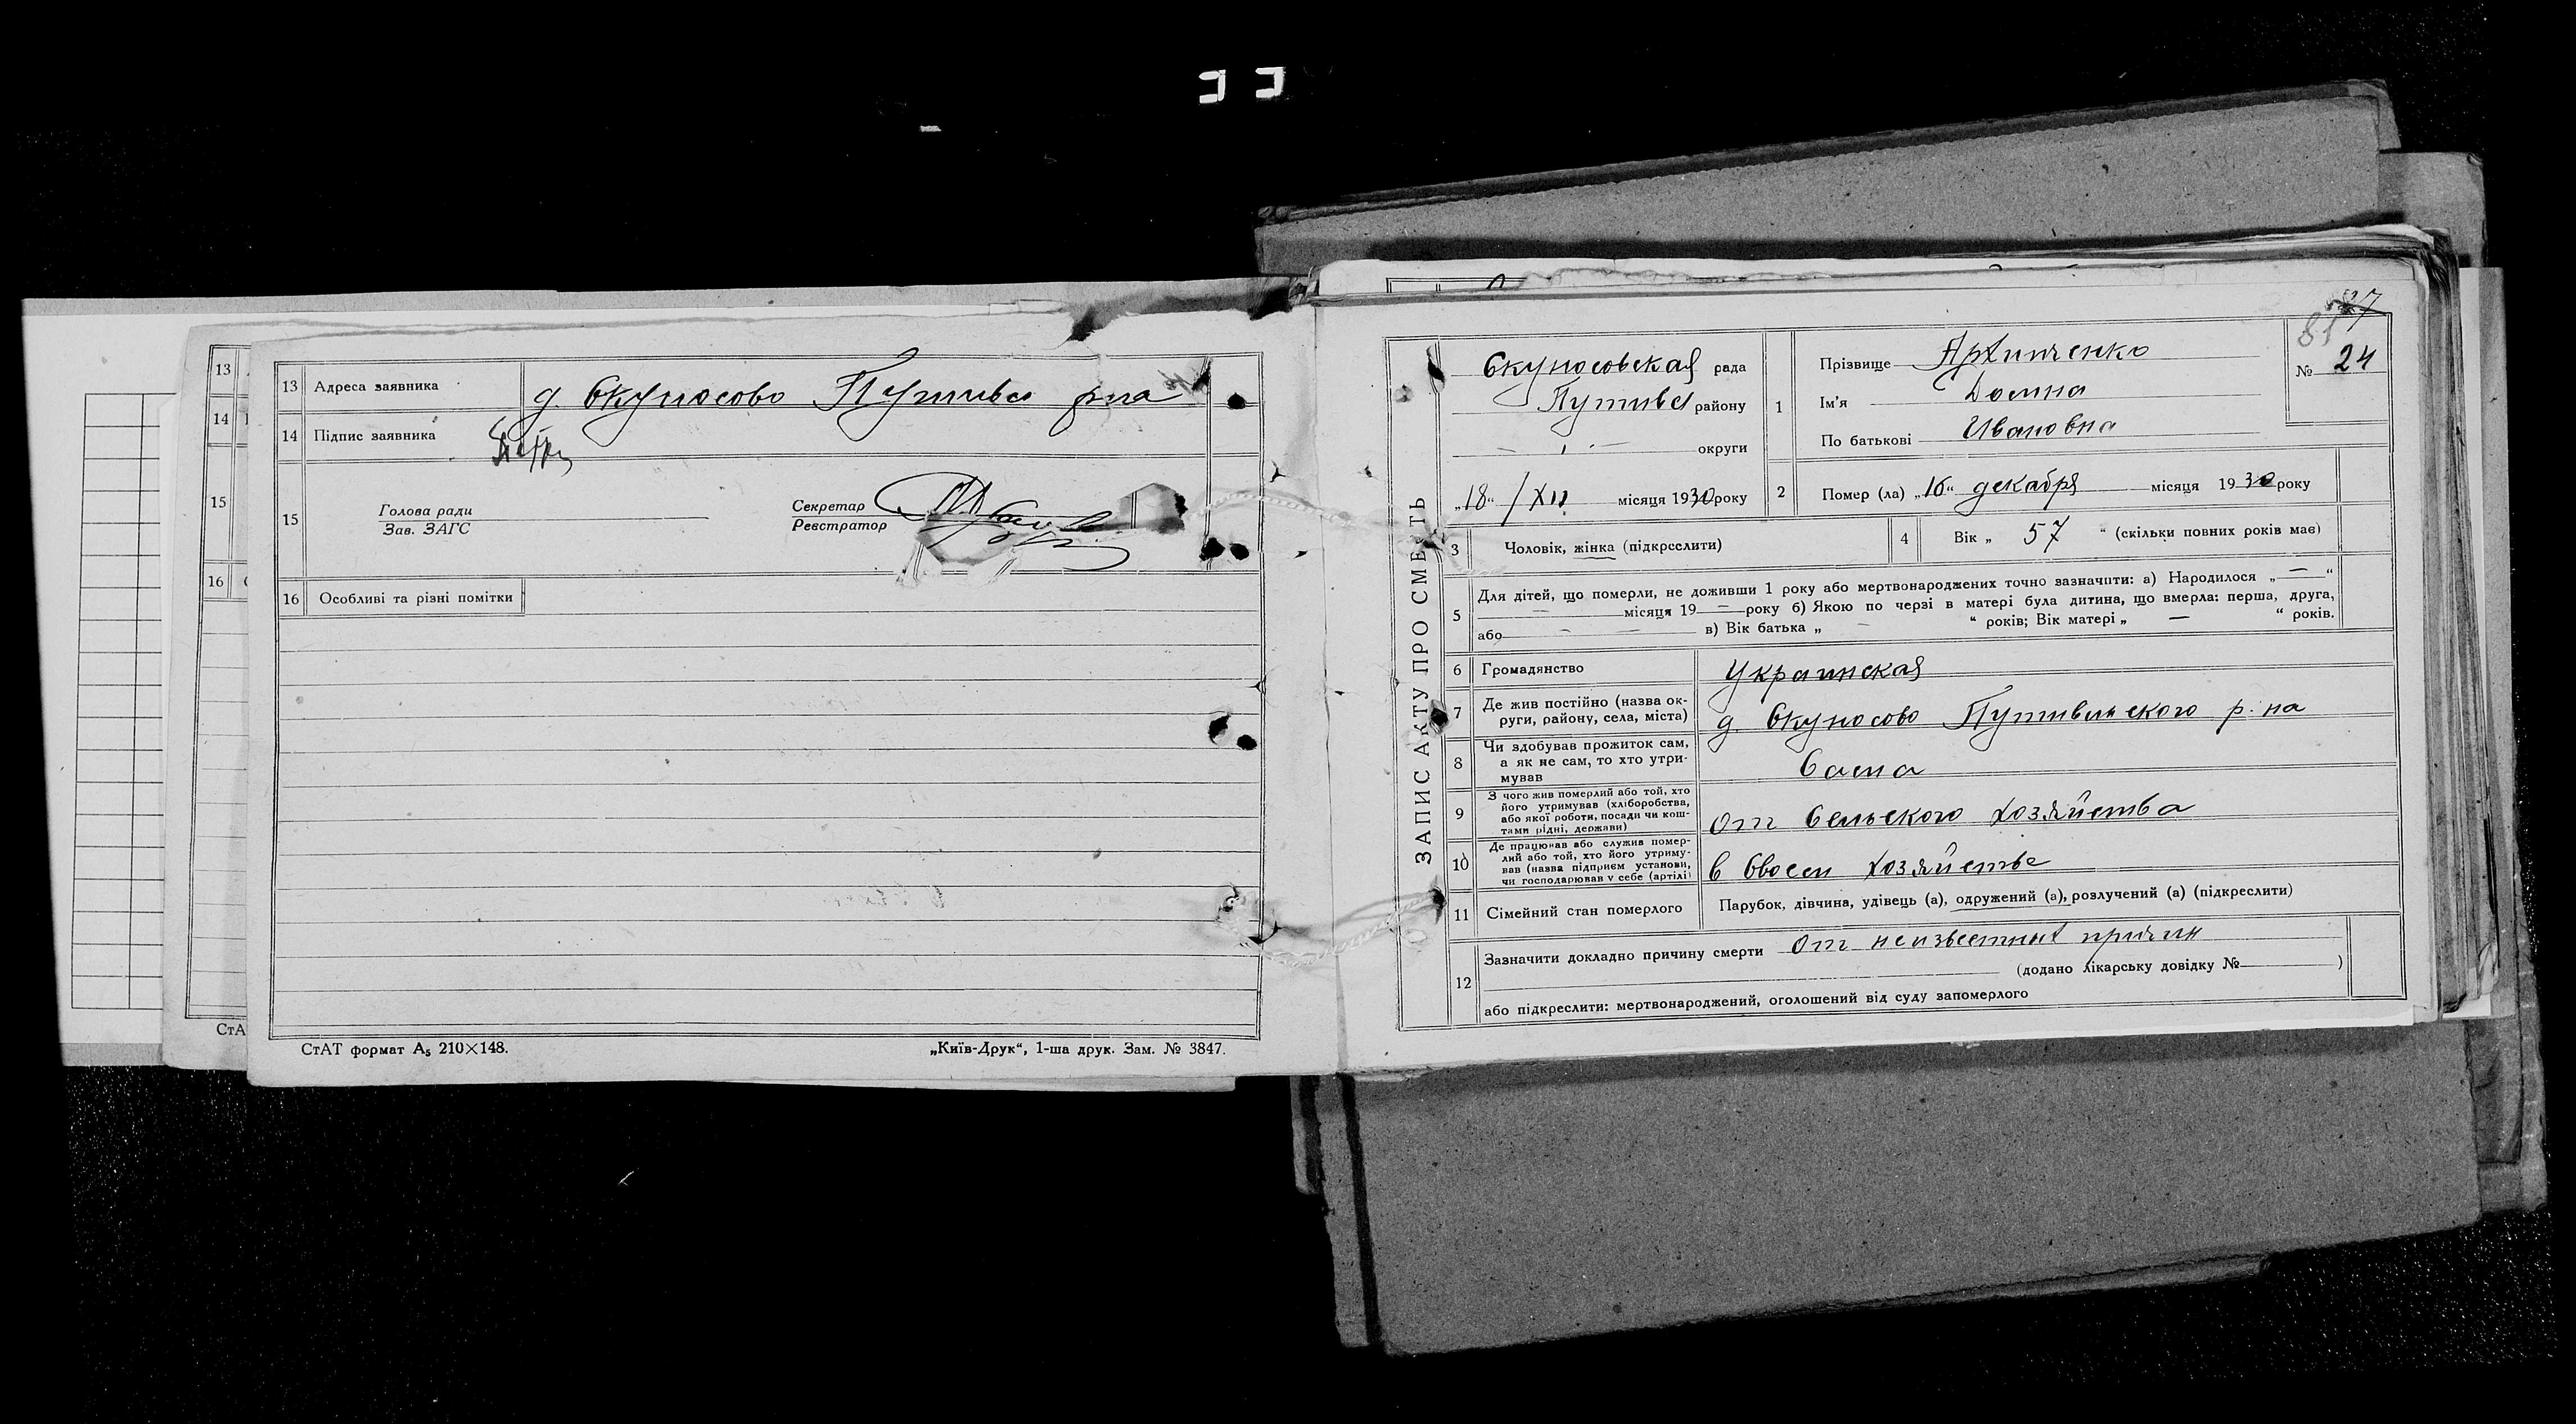 13 Адреса заявника д. Скуносово Путивл р-на
14 Підпис заявника
15
Голова ради
Зав. ЗАГС
Секретар
Реєстратор
16 Особливі та різні помітки
СтАТ формат А₅ 210×148.
„Київ-Друк“, 1-ша друк. Зам. № 3847.
13
14
15
16
СтА
ЗАПИС АКТУ ПРО СМЕРТЬ
Скуносовская рада
Путивл району
— округи
„18“ / XII місяця 1930 року
1 Прізвище Архипченко
Ім'я Домна
По батькові Ивановна
81
№ 24
2 Помер (ла) „16“ декабря місяця 1930 року
3 Чоловік, жінка (підкреслити)
4 Вік „ 57 “ (скільки повних років має)
5 Для дітей, що померли, не доживши 1 року або мертвонароджених точно зазначити: а) Народилося „—“
— місяця 19 — року б) Якою по черзі в матері була дитина, що вмерла: перша, друга,
або — — в) Вік батька „ — “ років; Вік матері „ — “ років.
6 Громадянство Украинская
7 Де жив постійно (назва ок-
руги, району, села, міста) д. Скуносово Путивльского р-на
8 Чи здобував прожиток сам,
а як не сам, то хто утри-
мував Сама
9 З чого жив померлий або той, хто
його утримував (хліборобства,
або якої роботи, посади чи кош-
тами рідні, держави) от Сельского хозяйства
10 Де працював або служив помер-
лий або той, хто його утриму-
вав (назва підприєм установи,
чи господарював у себе (артілі) в Своем хозяйстве
11 Сімейний стан померлого Парубок, дівчина, удівець (а), одружений (а), розлучений (а) (підкреслити)
12 Зазначити докладно причину смерти от неизвестных причин
(додано лікарську довідку № )
або підкреслити: мертвонароджений, оголошений від суду запомерлого